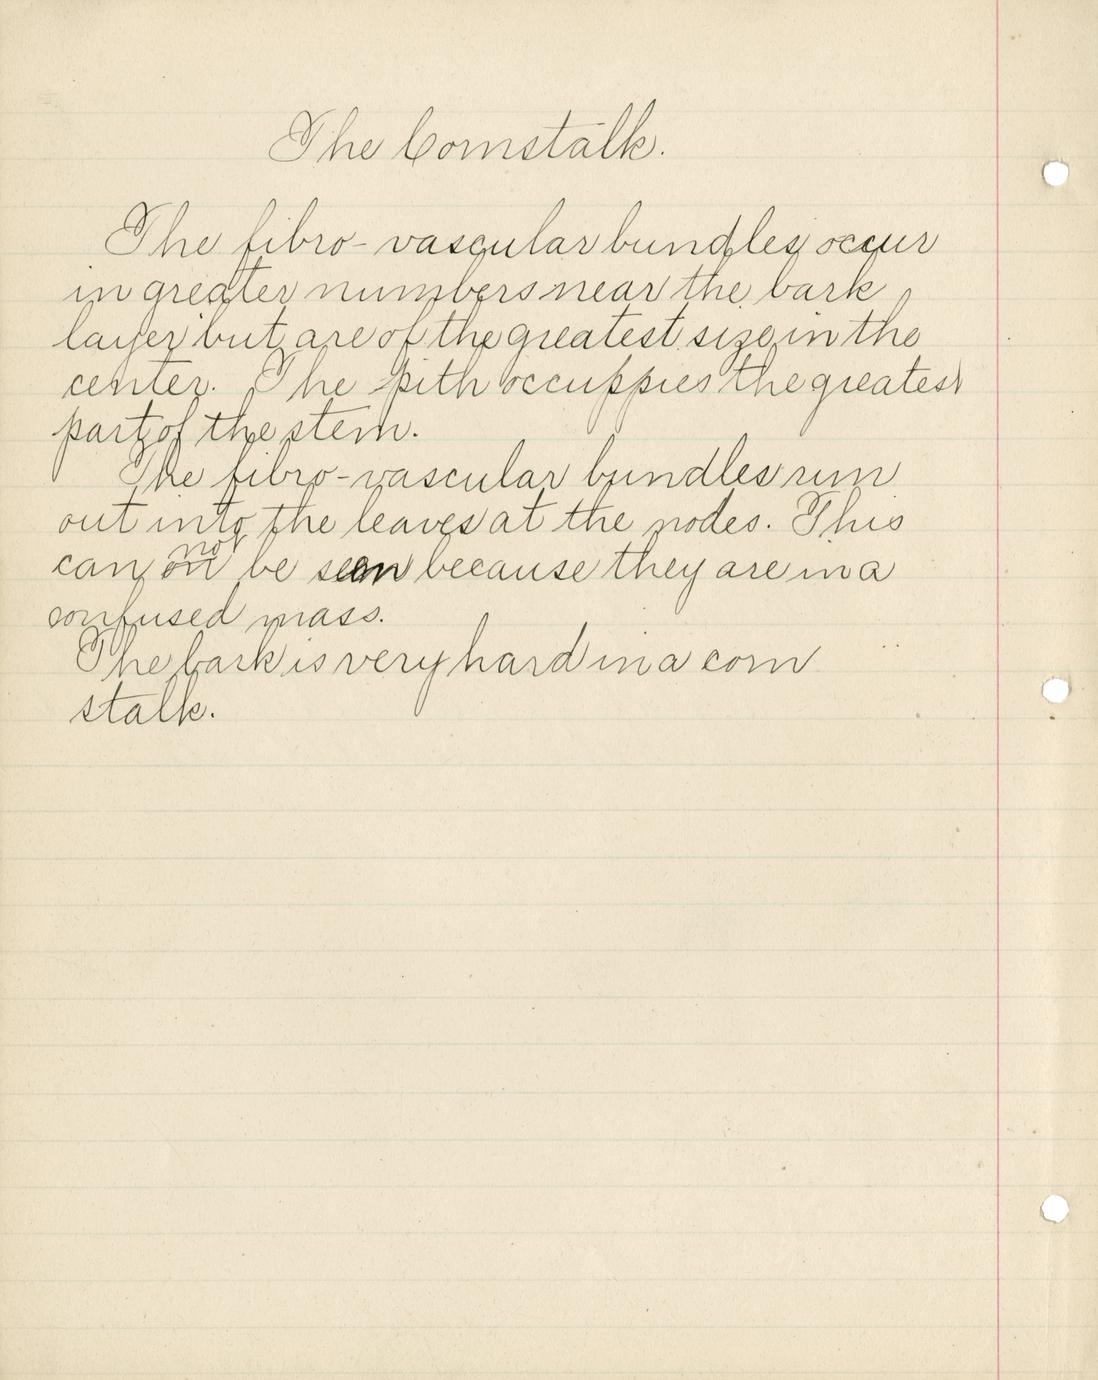 The Cornstalk.
The fibro-vascular bundles occur
in greater numbers near the bark
layer but are of the greatest size in the
center. The pith occuppies the greatest
part of the stem.
The fibro-vascular bundles run
out into the leaves at the nodes. This
not
can on be seen because they are in a
confused mass.
The bark is very hard in a corn
stalk.